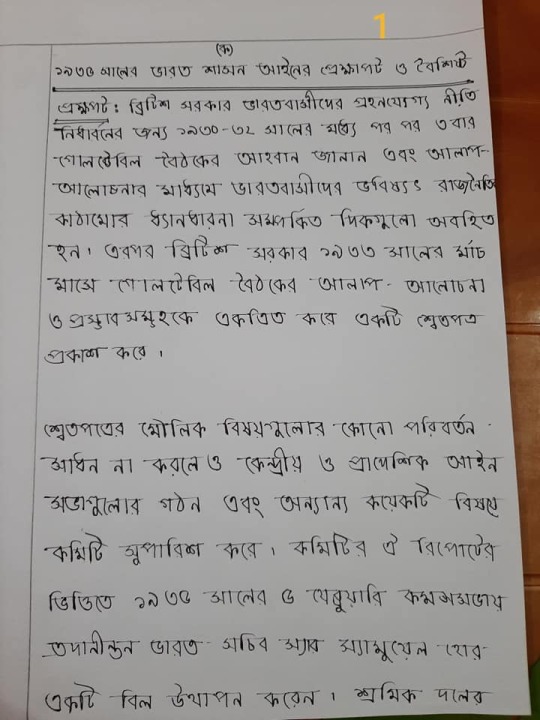 1
(ক)
১৯৩৫ সালের ভারত শাসন আইনের প্রেক্ষাপট ও বৈশিষ্ট্য
প্রেক্ষাপট : ব্রিটিশ সরকার ভারতবাসীদের গ্রহনযোগ্য নীতি
নির্ধারনের জন্য ১৯৩০-৩২ সালের মধ্যে পর পর ৩ বার
গোলটেবিল বৈঠকের আহবান জানান এবং আলাপ-
আলোচনার মাধ্যমে ভারতবাসীদের ভবিষ্যৎ রাজনৈতিক
কাঠামোর ধ্যানধারনা সম্পর্কিত দিকগুলো অবহিত
হন। এরপর ব্রিটিশ সরকার ১৯৩৩ সালের মার্চ
মাসে গোলটেবিল বৈঠকের আলাপ- আলোচনা
ও প্রস্তাবসমূহকে একত্রিত করে একটি শ্বেতপত্র
প্রকাশ করে।
শ্বেতপত্রের মৌলিক বিষয়গুলোর কোনো পরিবর্তন
সাধন না করলেও কেন্দ্রীয় ও প্রাদেশিক আইন
সভাগুলোর গঠন এবং অন্যান্য কয়েকটি বিষয়ে
কমিটি সুপারিশ করে। কমিটির ঐ রিপোর্টের
ভিত্তিতে ১৯৩৫ সালের ৫ ফেব্রুয়ারি কমন্সসভায়
তদানীন্তন ভারত সচিব স্যার স্যামুয়েল হোর
একটি বিল উথাপন করেন। শ্রমিক দলের